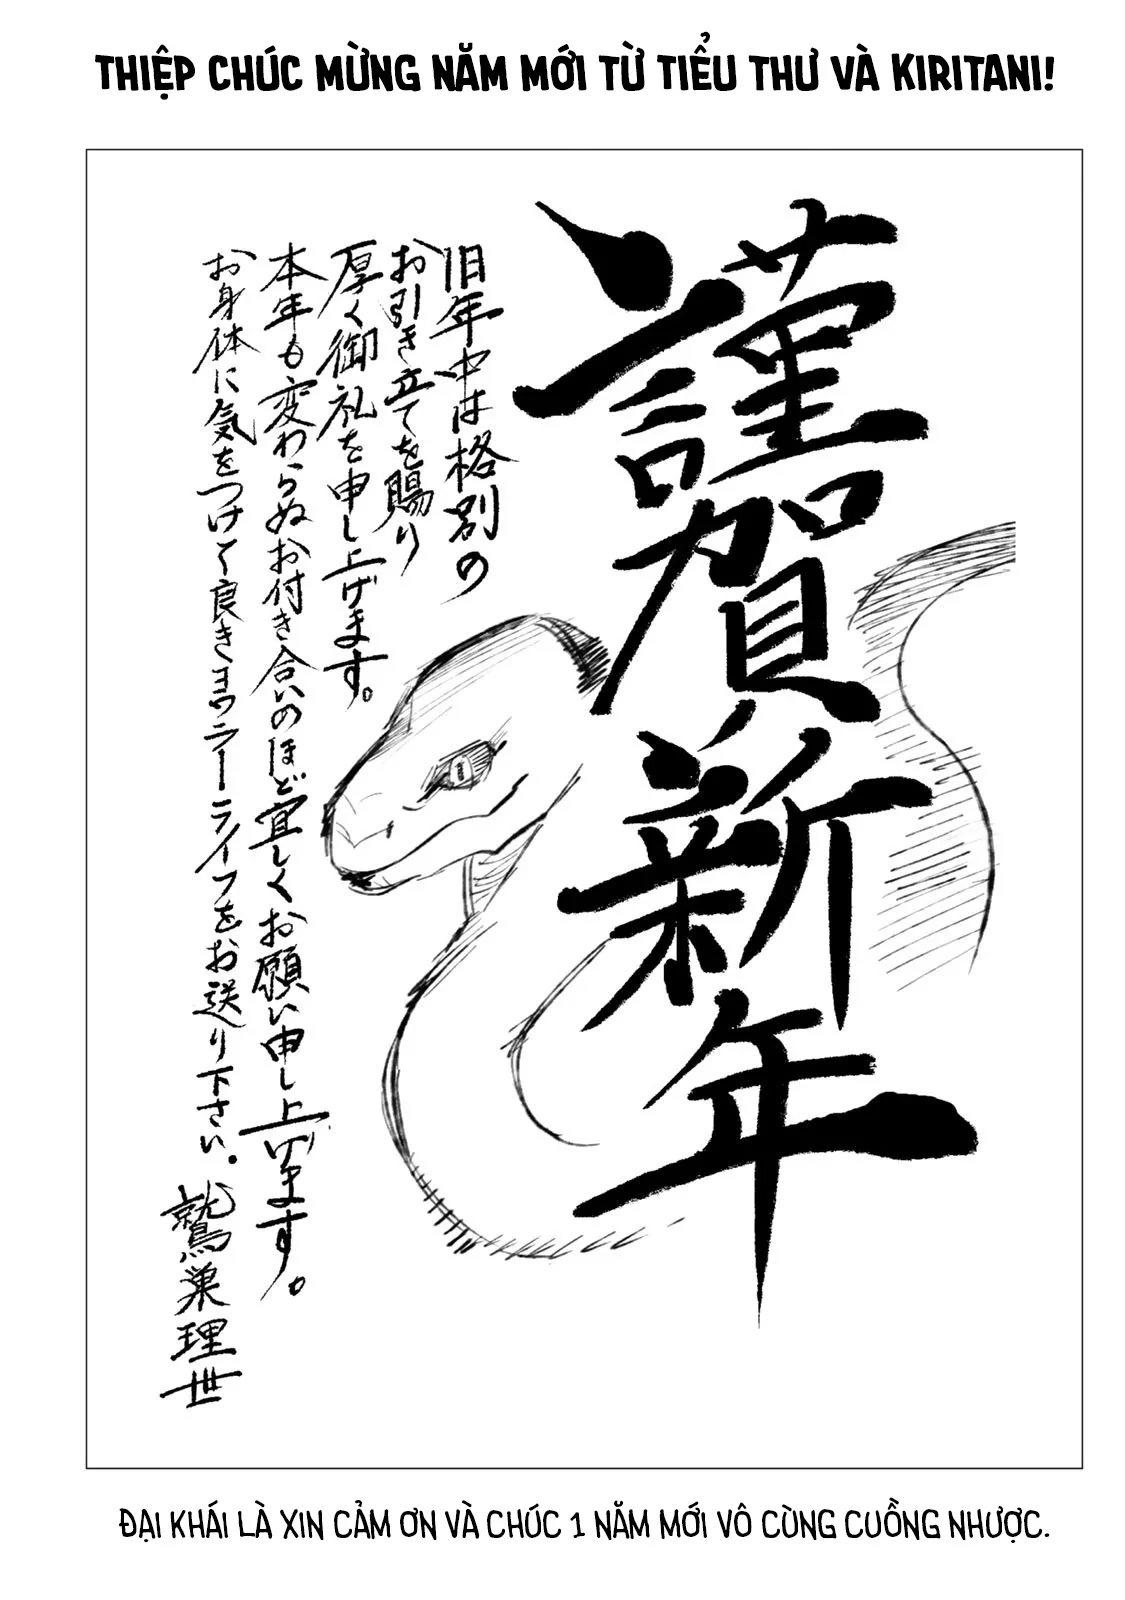 THIỆP CHÚC MỪNG NĂM MỚI TỪ TIỂU THƯ VÀ KIRITANI!
謹賀新年
旧年中は格別の
お引き立てを賜り
厚く御礼を申し上げます。
本年も変わらぬお付き合いのほど宜しくお願い申し上げます。
お身体に気をつけて良きヨワニーライフをお送り下さい。
鷲巣理世
ĐẠI KHÁI LÀ XIN CẢM ƠN VÀ CHÚC 1 NĂM MỚI VÔ CÙNG CUỒNG NHƯỢC.